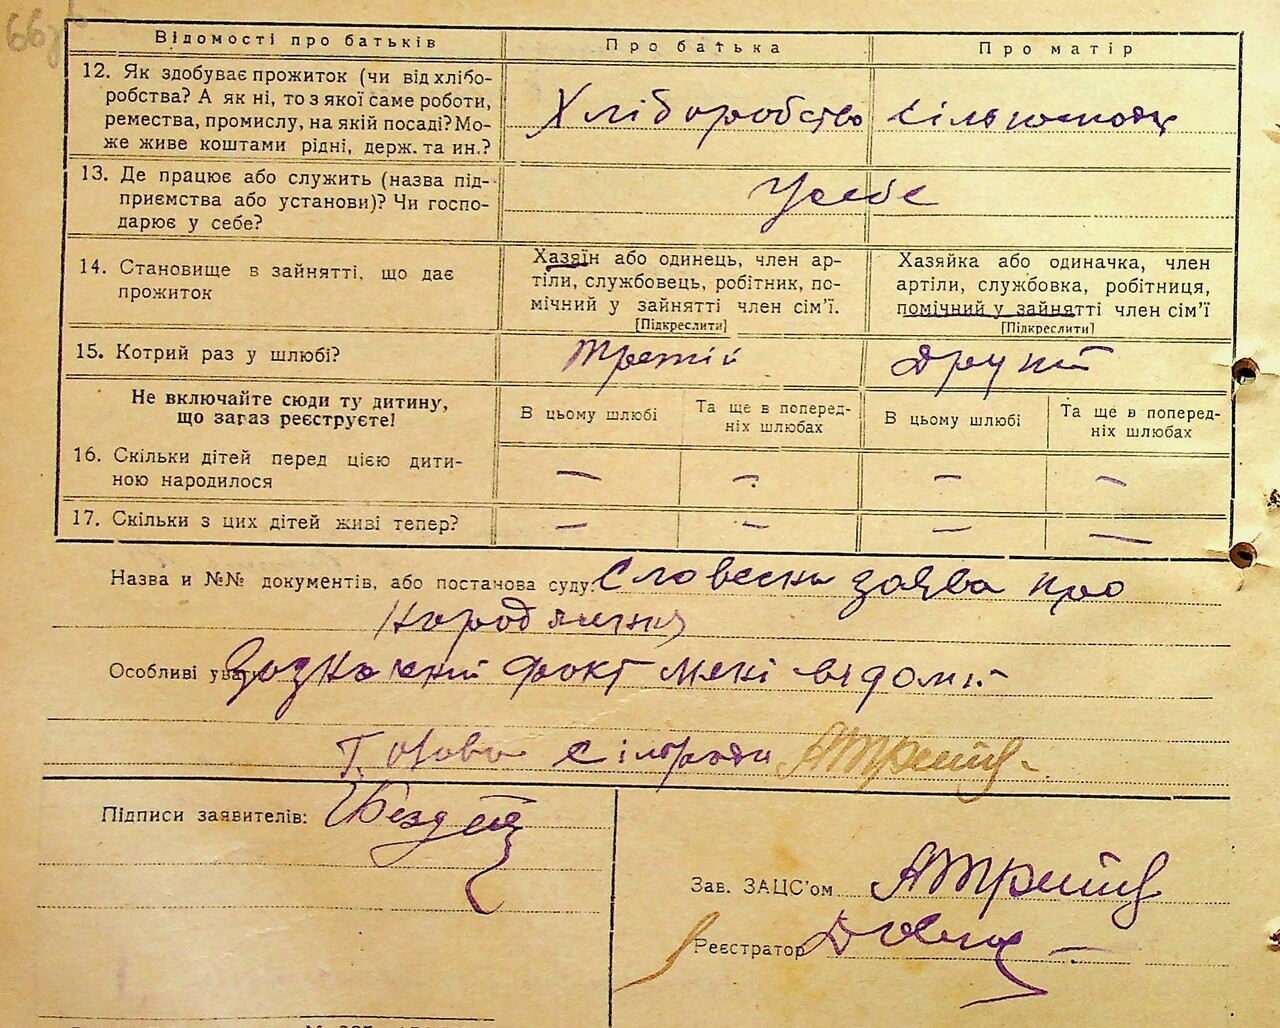 66зв
Відомості про батьків
Про батька
Про матір
12. Як здобуває прожиток (чи від хлібо-
робства? А як ні, то з якої саме роботи,
ремества, промислу, на якій посаді? Мо-
же живе коштами рідні, держ. та ин.?
Хліборобство
13. Де працює або служить (назва під-
приємства або установи)? Чи госпо-
дарює у себе?
У себе
14. Становище в зайнятті, що дає
прожиток
Хазяїн або одинець, член ар-
тіли, службовець, робітник, по-
мічний у зайнятті член сім'ї.
[Підкреслити]
Хазяйка або одиначка, член
артіли, службовка, робітниця,
помічний у зайнятті член сім'ї
[Підкреслити]
15. Котрий раз у шлюбі?
Третій
Другий
Не включайте сюди ту дитину,
що загаз реєструєте!
В цьому шлюбі
Та ще в поперед-
ніх шлюбах
В цьому шлюбі
Та ще в поперед-
ніх шлюбах
16. Скільки дітей перед цією дити-
ною народилося
— — — —
17. Скільки з цих дітей живі тепер?
— — — —
Назва и №№ документів, або постанова суду: Словесна заява про
народження
Особливі уваги Зазначений факт мені відомий
Голова Сільради
Підписи заявителів:
Зав. ЗАЦС'ом
Реєстратор